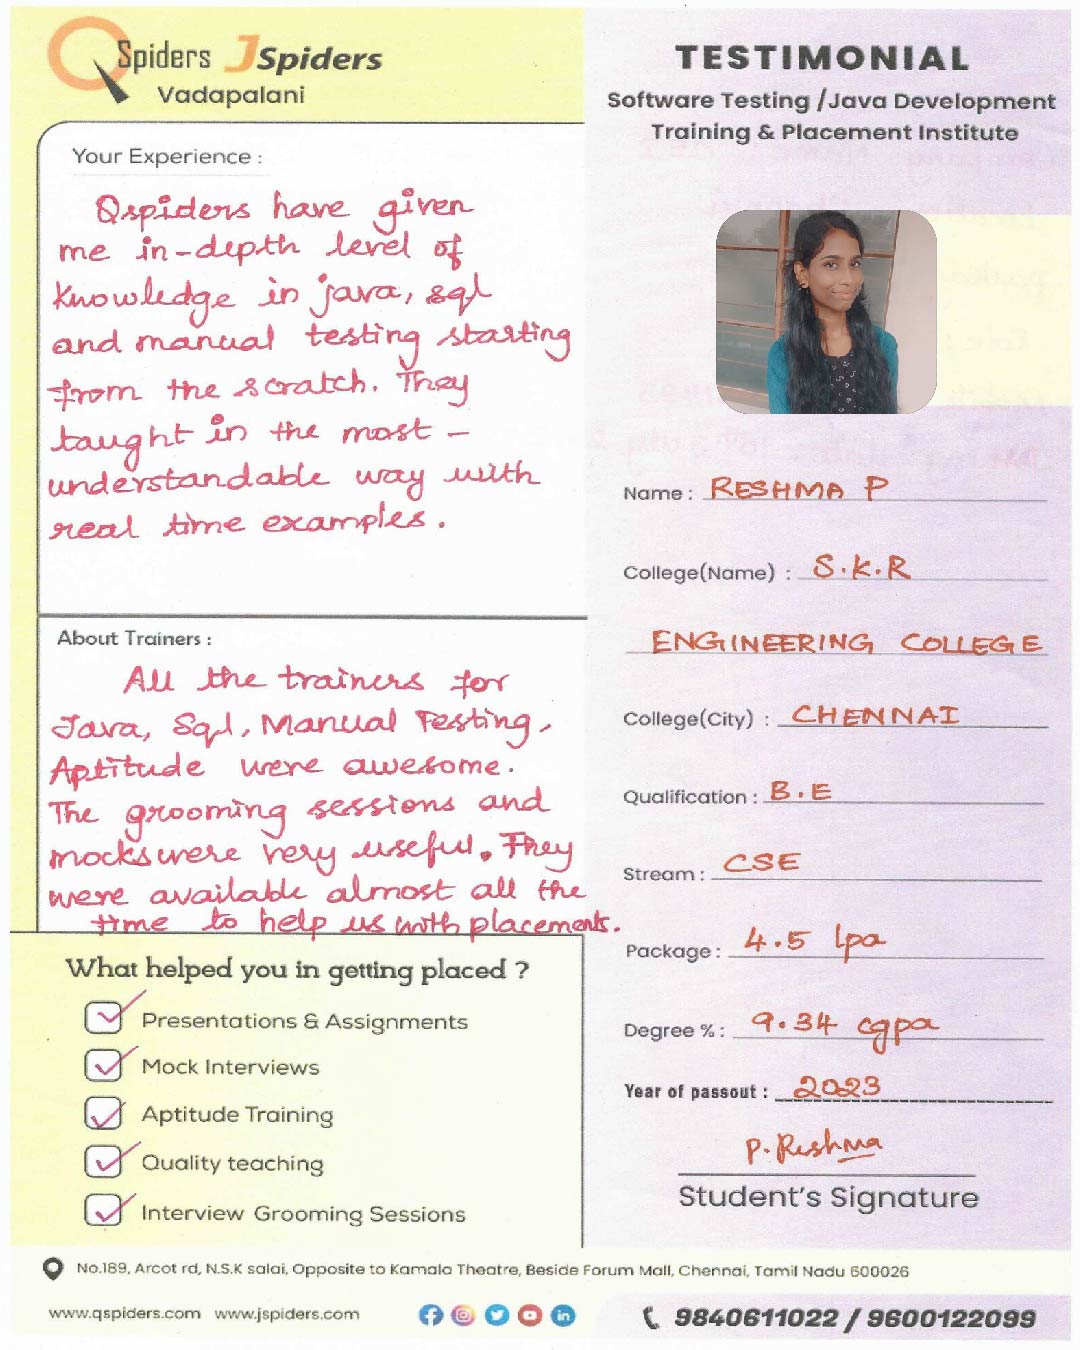 QSpiders JSpiders
Vadapalani
TESTIMONIAL
Software Testing /Java Development
Training & Placement Institute
Your Experience :
Qspiders have given
me in-depth level of
knowledge in java, sql
and manual testing starting
from the scratch. They
taught in the most -
understandable way with
real time examples.
About Trainers :
All the trainers for
Java, Sql, Manual Testing,
Aptitude were awesome.
The grooming sessions and
mocks were very useful. They
were available almost all the
time to help us with placements.
What helped you in getting placed ?
Presentations & Assignments
Mock Interviews
Aptitude Training
Quality teaching
Interview Grooming Sessions
Name : RESHMA P
College(Name) : S.K.R
ENGINEERING COLLEGE
College(City) : CHENNAI
Qualification : B.E
Stream : CSE
Package : 4.5 lpa
Degree % : 9.34 cgpa
Year of passout : 2023
P. Reshma
Student's Signature
No.189, Arcot rd, N.S.K salai, Opposite to Kamala Theatre, Beside Forum Mall, Chennai, Tamil Nadu 600026
www.qspiders.com www.jspiders.com
9840611022 / 9600122099